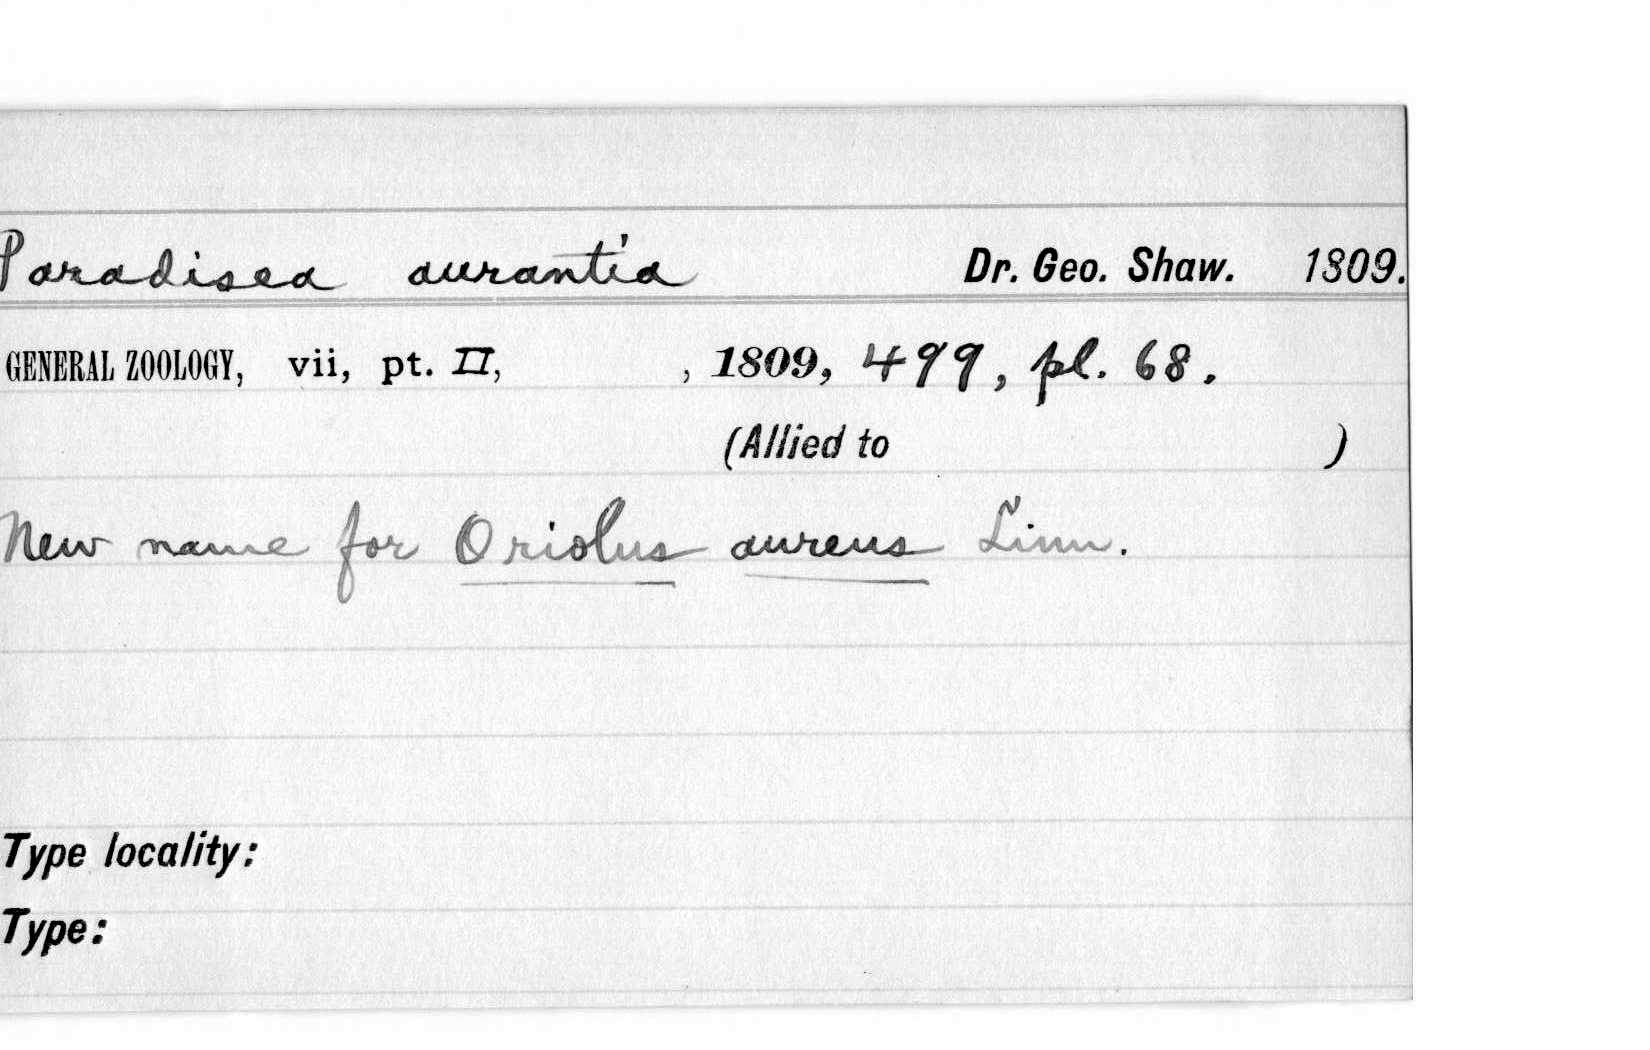 Paradisea aurantia Dr. Geo. Shaw. 1809.
GENERAL ZOOLOGY, vii, pt. II, , 1809, 499, pl. 68.
(Allied to )
New name for Oriolus aureus Linn.
Type locality:
Type: